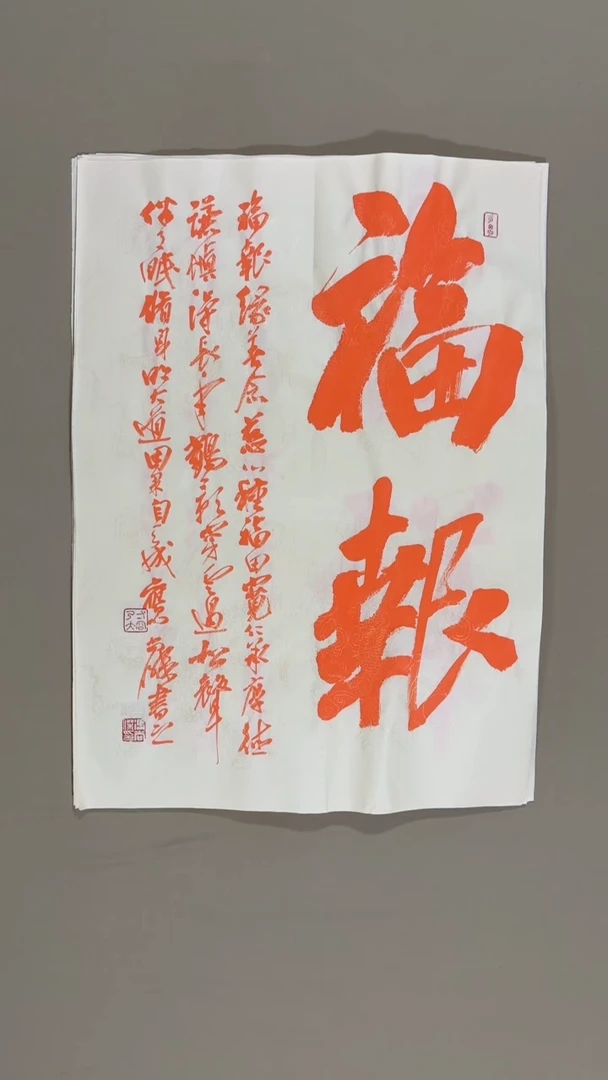 福報
福報緣善念慈心種福田寬仁承厚德
謹慎得長年鶴影穿雲過松聲
伴月眠脩身明大道因果自
書之